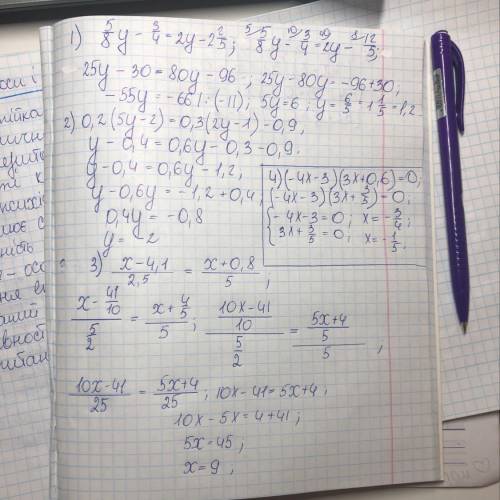 1) 5/8 y - 3/4 = 2y - 2 2/5; 5/8 y - 3/4 = 2y - 12/5;
25y - 30 = 80y - 96; 25y - 80y = -96 + 30;
-55y = -66 | : (-11); 5y = 6; y = 6/5 = 1 1/5 = 1,2
2) 0,2(5y-2) = 0,3(2y-1) - 0,9.
y - 0,4 = 0,6y - 0,3 - 0,9.
y - 0,4 = 0,6y - 1,2;
y - 0,6y = -1,2 + 0,4;
0,4y = -0,8
y = -2
4) (-4x-3)(3x+0,6) = 0;
(-4x-3)(3x+3/5) = 0;
-4x-3 = 0; x = -3/4;
3x+3/5 = 0; x = -1/5.
3) (x-4,1)/2,5 = (x+0,8)/5;
(x - 41/10)/(5/2) = (x + 4/5)/5; ((10x-41)/10)/(5/2) = ((5x+4)/5)/5;
(10x-41)/25 = (5x+4)/25; 10x-41 = 5x+4;
10x-5x = 4+41;
5x = 45;
x = 9;